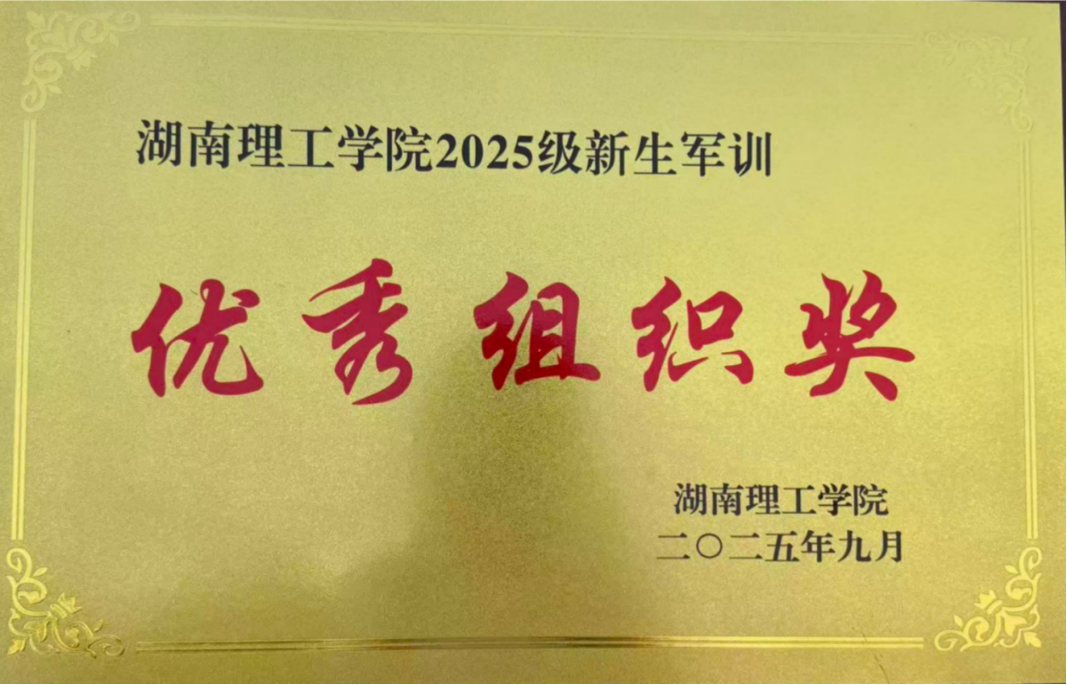 湖南理工学院2025级新生军训
优秀组织奖
湖南理工学院
二〇二五年九月